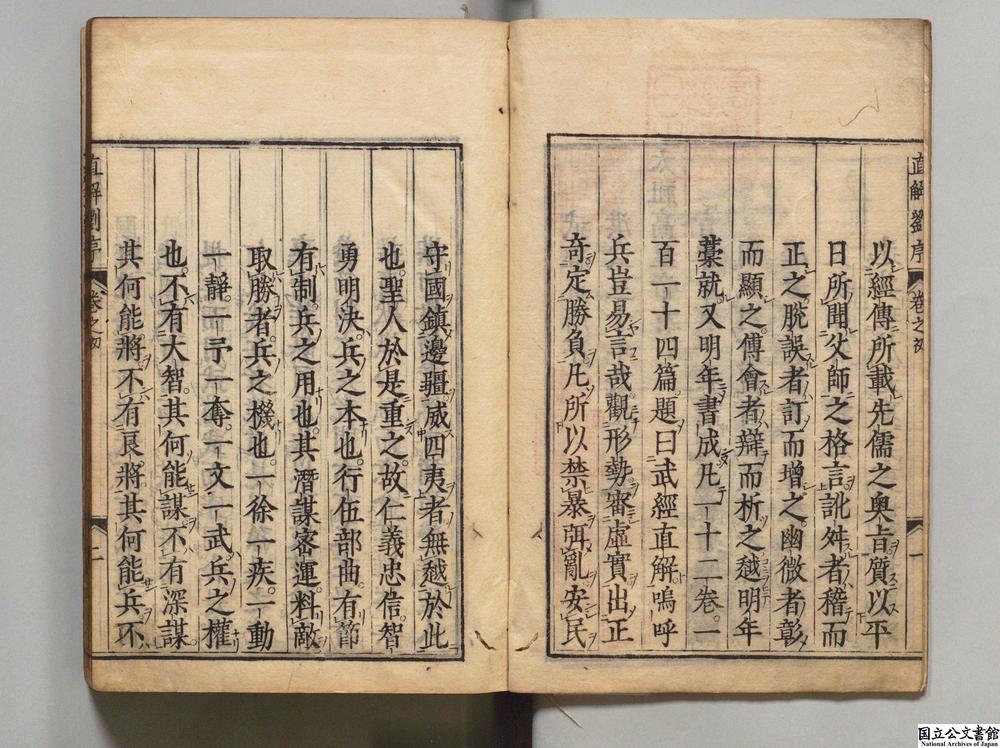 直解劉序 卷之初 一
以經傳所載先儒之奧旨質以平
日所聞父師之格言訛舛者稽而
正之脫誤者訂而增之幽微者彰
而顯之傅會者辯而析之越明年
藁就又明年書成凡一十二卷一
百一十四篇題曰武經直解嗚呼
兵豈易言哉觀形勢審虛實出正
奇定勝負凡所以禁暴弭亂安民
守國鎮邊疆威四夷者無越於此
也聖人於是重之故仁義忠信智
勇明決兵之本也行伍部曲有節
有制兵之用也其潛謀密運料敵
取勝者兵之機也一徐一疾一動
一靜一予一奪一文一武兵之權
也不有大智其何能謀不有深謀
其何能將不有良將其何能兵不
直解劉序 卷之初 二
国立公文書館
National Archives of Japan